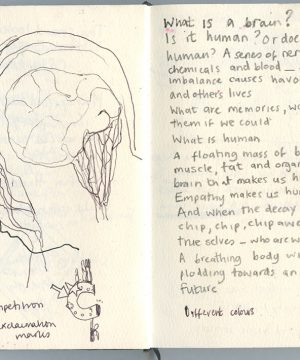 What is a brain?
Is it human? Or doe
human? A series of ner
chemicals and blood _
imbalance causes havo
and others lives
What are memories, wo
them if we could
What is human
A floating mass of b
muscle, fat and organ
brain that makes us h
Empathy makes us hu
And when the decay
chip, chip, chip awa
true selves _ who are w
A breathing body w
plodding towards an
future
Different colours
mpetition
exclamation
marks